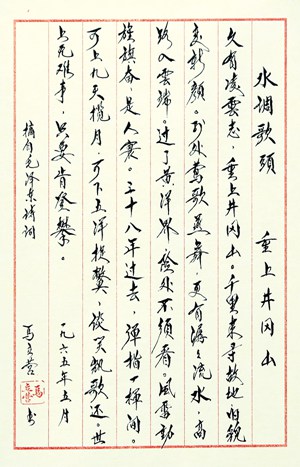 水调歌頭 重上井冈山
久有凌雲志,重上井冈山。千里来寻故地,旧貌
变新颜。到处莺歌燕舞,更有潺潺流水,高
路入雲端。过了黄洋界,险处不须看。风雷动,
旌旗奋,是人寰。三十八年过去,弹指一挥间。
可上九天揽月,可下五洋捉鳖,谈笑凯歌还。世
上无难事,只要肯登攀。 一九六五年五月
摘自毛泽东诗词 马立营 书